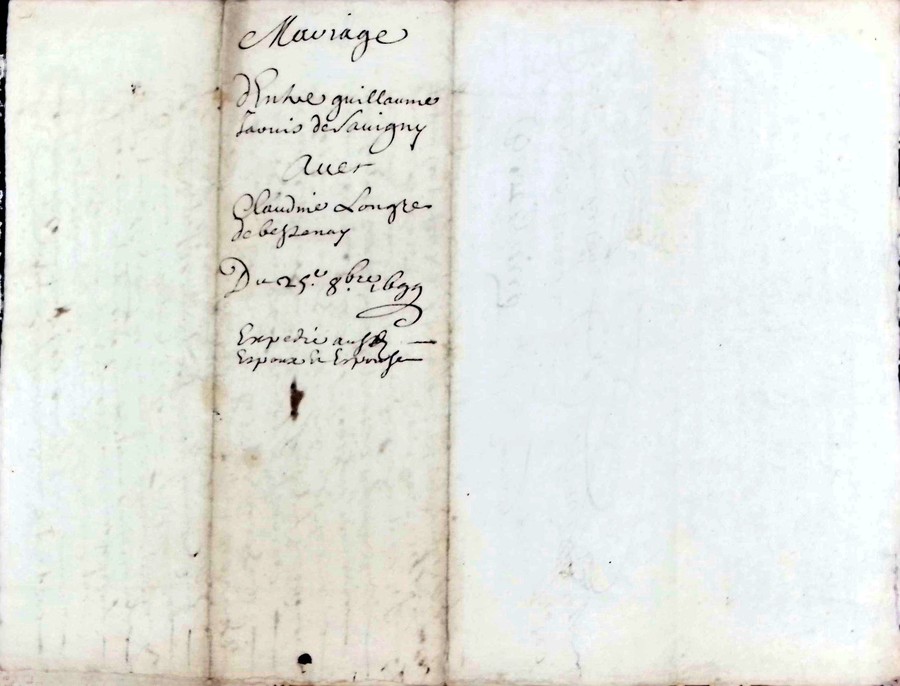 Mariage
d'Entre guillaume
de Savigny
Avec
Claudine Longre
de bessenay
Du 25.e 8.bre 1699
Expedié ausd
Espoux Et Espouse